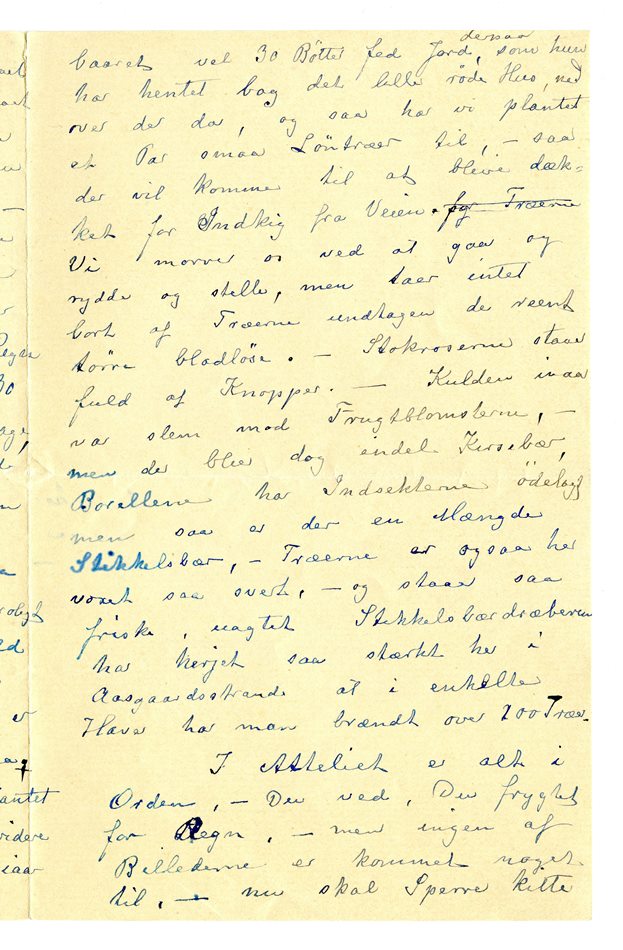 dersaa
baaret vel 30 Bötter fed Jord, som hun
har hentet bag det lille röde Hus, ned
over der da, og saa har vi plantet
et Par smaa Löntrær til, – saa
der vil komme til at blive dæk=
ket for Indkig fra Veien. for Træerne
Vi morrer os ved at gaa og
rydde og stelle, men taer intet
bort af Træerne undtagen de reent
törre bladlöse. – Stokroserne staar
fuld af Knopper. – Kulden iaar
var slem mod Frugtblomsterne, –
men der blir dog endel Kirsebær,
Borellene har Indsekterne ödelagt
men saa er der en Mængde
Stikkelsbær, – Træerne er ogsaa her
voxet saa svert, – og staar saa
friske, uagtet Stikkelsbærdræberen
har herjet saa stærkt her i
Aasgaardsstrand at i enkelte
Haver har man brændt over 200 Trær.
I Atteliet er alt i
Orden, – Du ved, Du frygtet
for Regn, – men ingen af
Billederne er kommet noget
til, – nu skal Sperre kitte